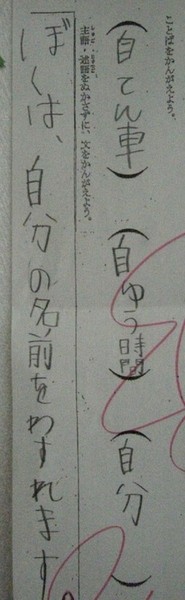 ことばをかんがえよう。
(自てん車)(自ゆう時間)(自分)
主語・述語をぬかさずに、文をかんがえよう。
ぼくは、自分の名前をわすれます